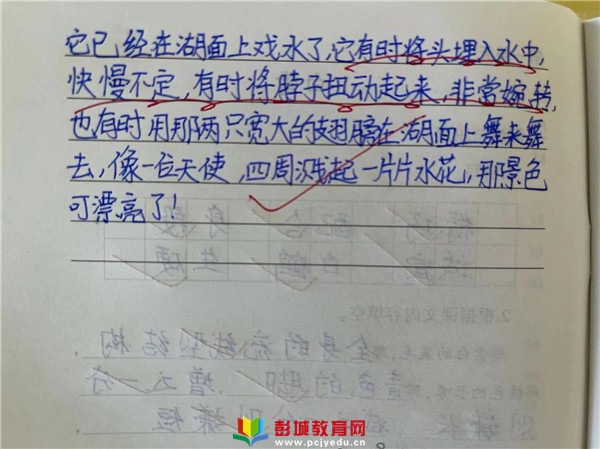 它已经在湖面上戏水了,它有时将头埋入水中,
快慢不定,有时将脖子扭动起来,非常婉转,
也有时用那两只宽大的翅膀在湖面上舞来舞
去,像一位天使,四周溅起一片片水花,那景色
可漂亮了!
2.根据课文内容填空。
彭城教育网
www.pcjyedu.cn